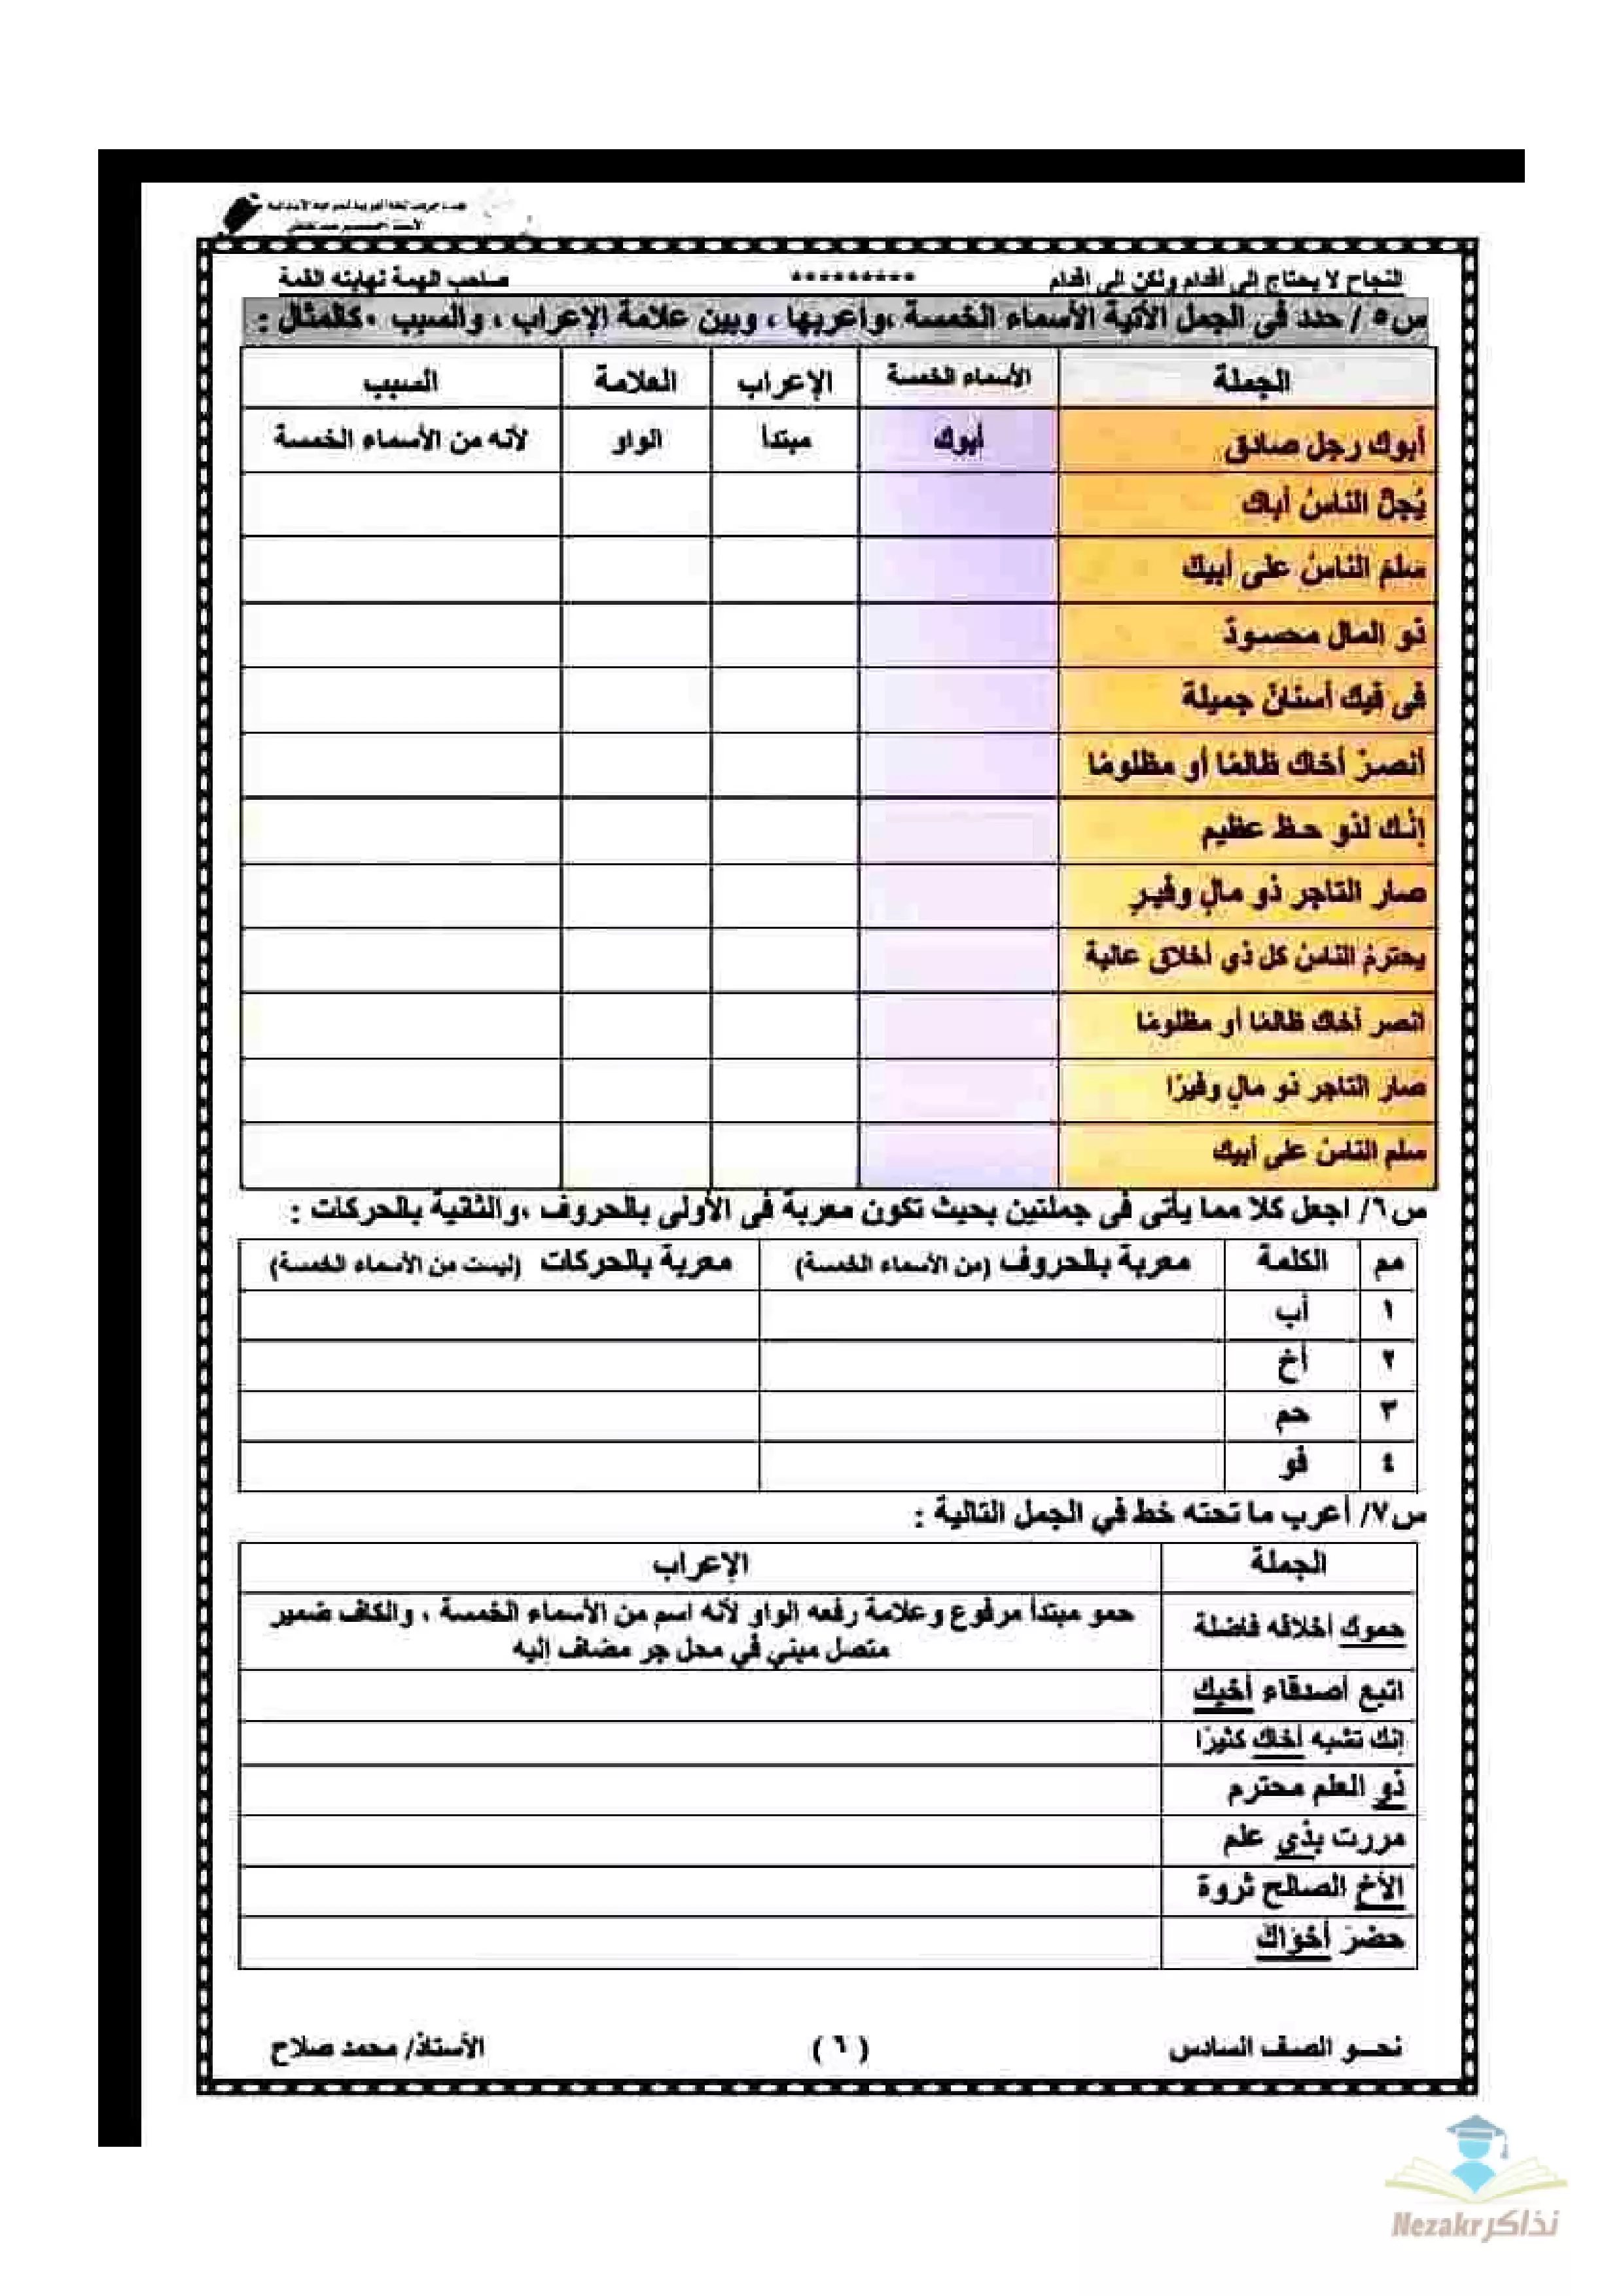 النجاح لا يحتاج إلى أقدام ولكن إلى إقدام ********* صاحب الهمة نهايته القمة
س٥ / حدد فى الجمل الآتية الأسماء الخمسة ،وأعربها ، وبين علامة الإعراب ، والسبب ٠كالمثال :
الجملة الأسماء الخمسة الإعراب العلامة السبب
أبوك رجل صادق أبوك مبتدأ الواو لأنه من الأسماء الخمسة
يُجلُّ الناسُ أباك
سلمَ الناسُ على أبيك
ذو المال محسودٌ
فى فيك أسنانٌ جميلة
أنصرْ أخاك ظالمًا أو مظلومًا
إنَّك لذو حظ عظيم
صار التاجر ذو مالٍ وفيرٍ
يحترمُ الناسُ كل ذي أخلاق عالية
انصر أخاك ظالمًا أو مظلومًا
صار التاجر ذو مالٍ وفيرًا
سلم الناسُ على أبيك
س٦/ اجعل كلا مما يأتى فى جملتين بحيث تكون معربة فى الأولى بالحروف ،والثانية بالحركات :
مم الكلمة معربة بالحروف (من الأسماء الخمسة) معربة بالحركات (ليست من الأسماء الخمسة)
١ أب
٢ أخ
٣ حم
٤ فو
س٧/ أعرب ما تحته خط في الجمل التالية :
الجملة الإعراب
حموك أخلاقه فاضلة حمو مبتدأ مرفوع وعلامة رفعه الواو لأنه اسم من الأسماء الخمسة ، والكاف ضمير
متصل مبني في محل جر مضاف إليه
اتبع أصدقاء أخيك
إنك تشبه أخاك كثيرًا
ذو العلم محترم
مررت بذي علم
الأخ الصالح ثروة
حضرَ أخَوَاكَ
نحـو الصف السادس ( ٦ ) الأستاذ/ محمد صلاح
Nezakr نذاكر